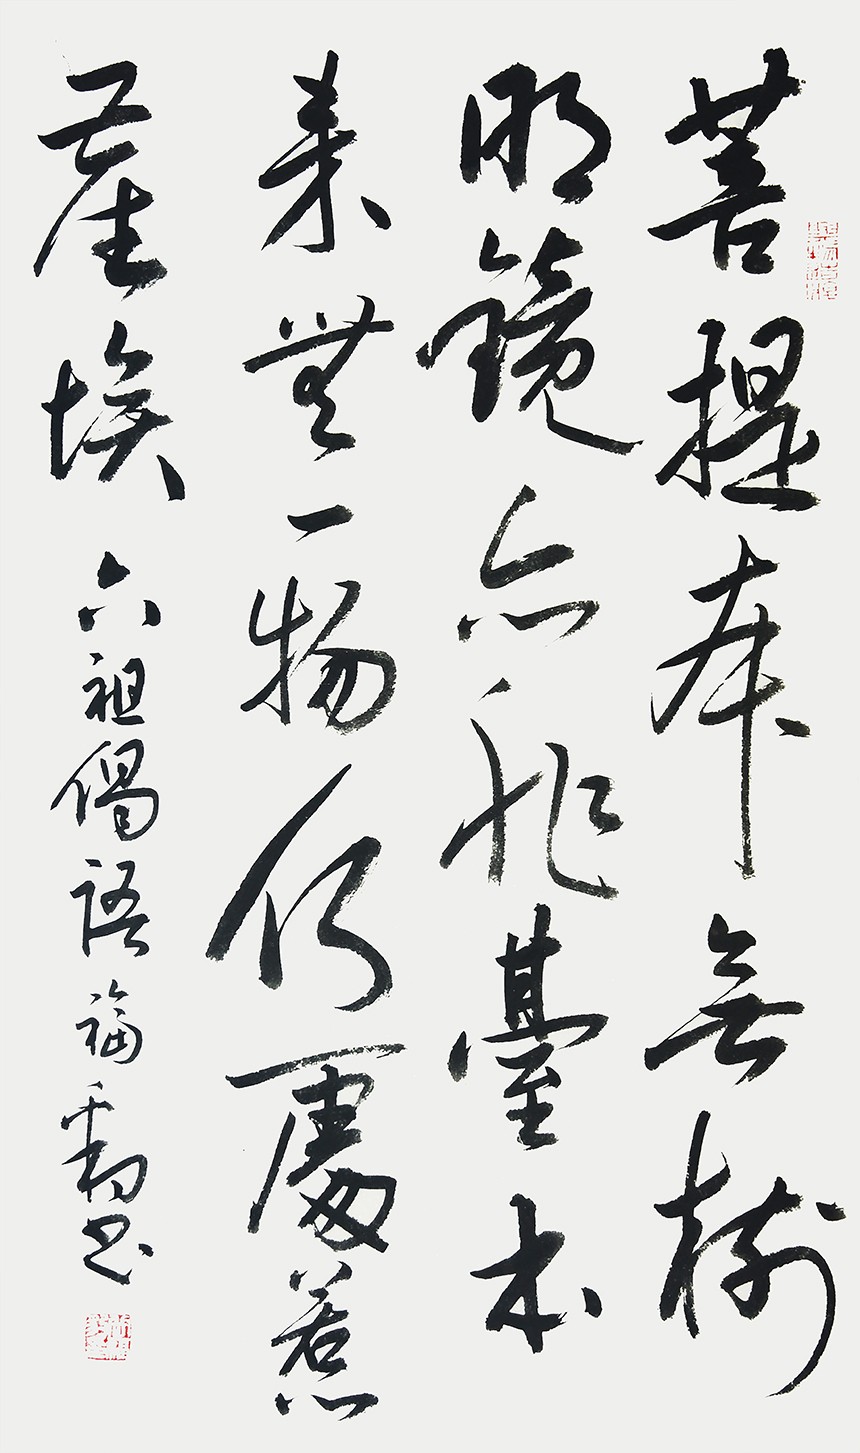 菩提本無樹
明鏡亦非臺本
来無一物何處惹
塵埃 六祖偈語 福